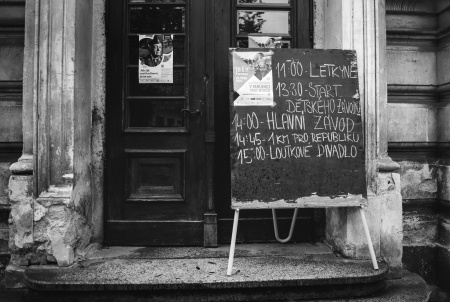 11:00-LETKYNĚ
13:30-START
DĚTSKÉHO ZÁVODU
14:00-HLAVNÍ ZÁVOD
14:45-1KM PRO REPUBLIKU
15:00-LOUTKOVÉ DIVADLO